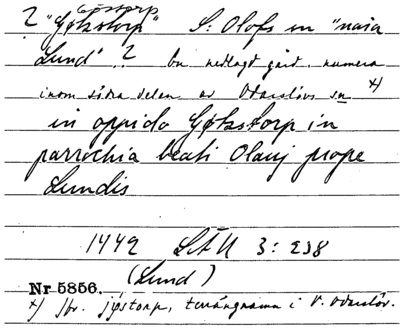 Göstorp
? "Gøtzstorp" S: Olofs sn "nära
Lund" ? nu nedlagt gård, numera
inom södra delen av Odarslövs sn x)
in oppido Gøtzstorp in
parrochia beati Olauj prope
Lundis
1449 LÄU 3: 238
Nr 5856. (Lund)
x) Jvr. Jøstorp, terrängnamn i V. Odarslöv.